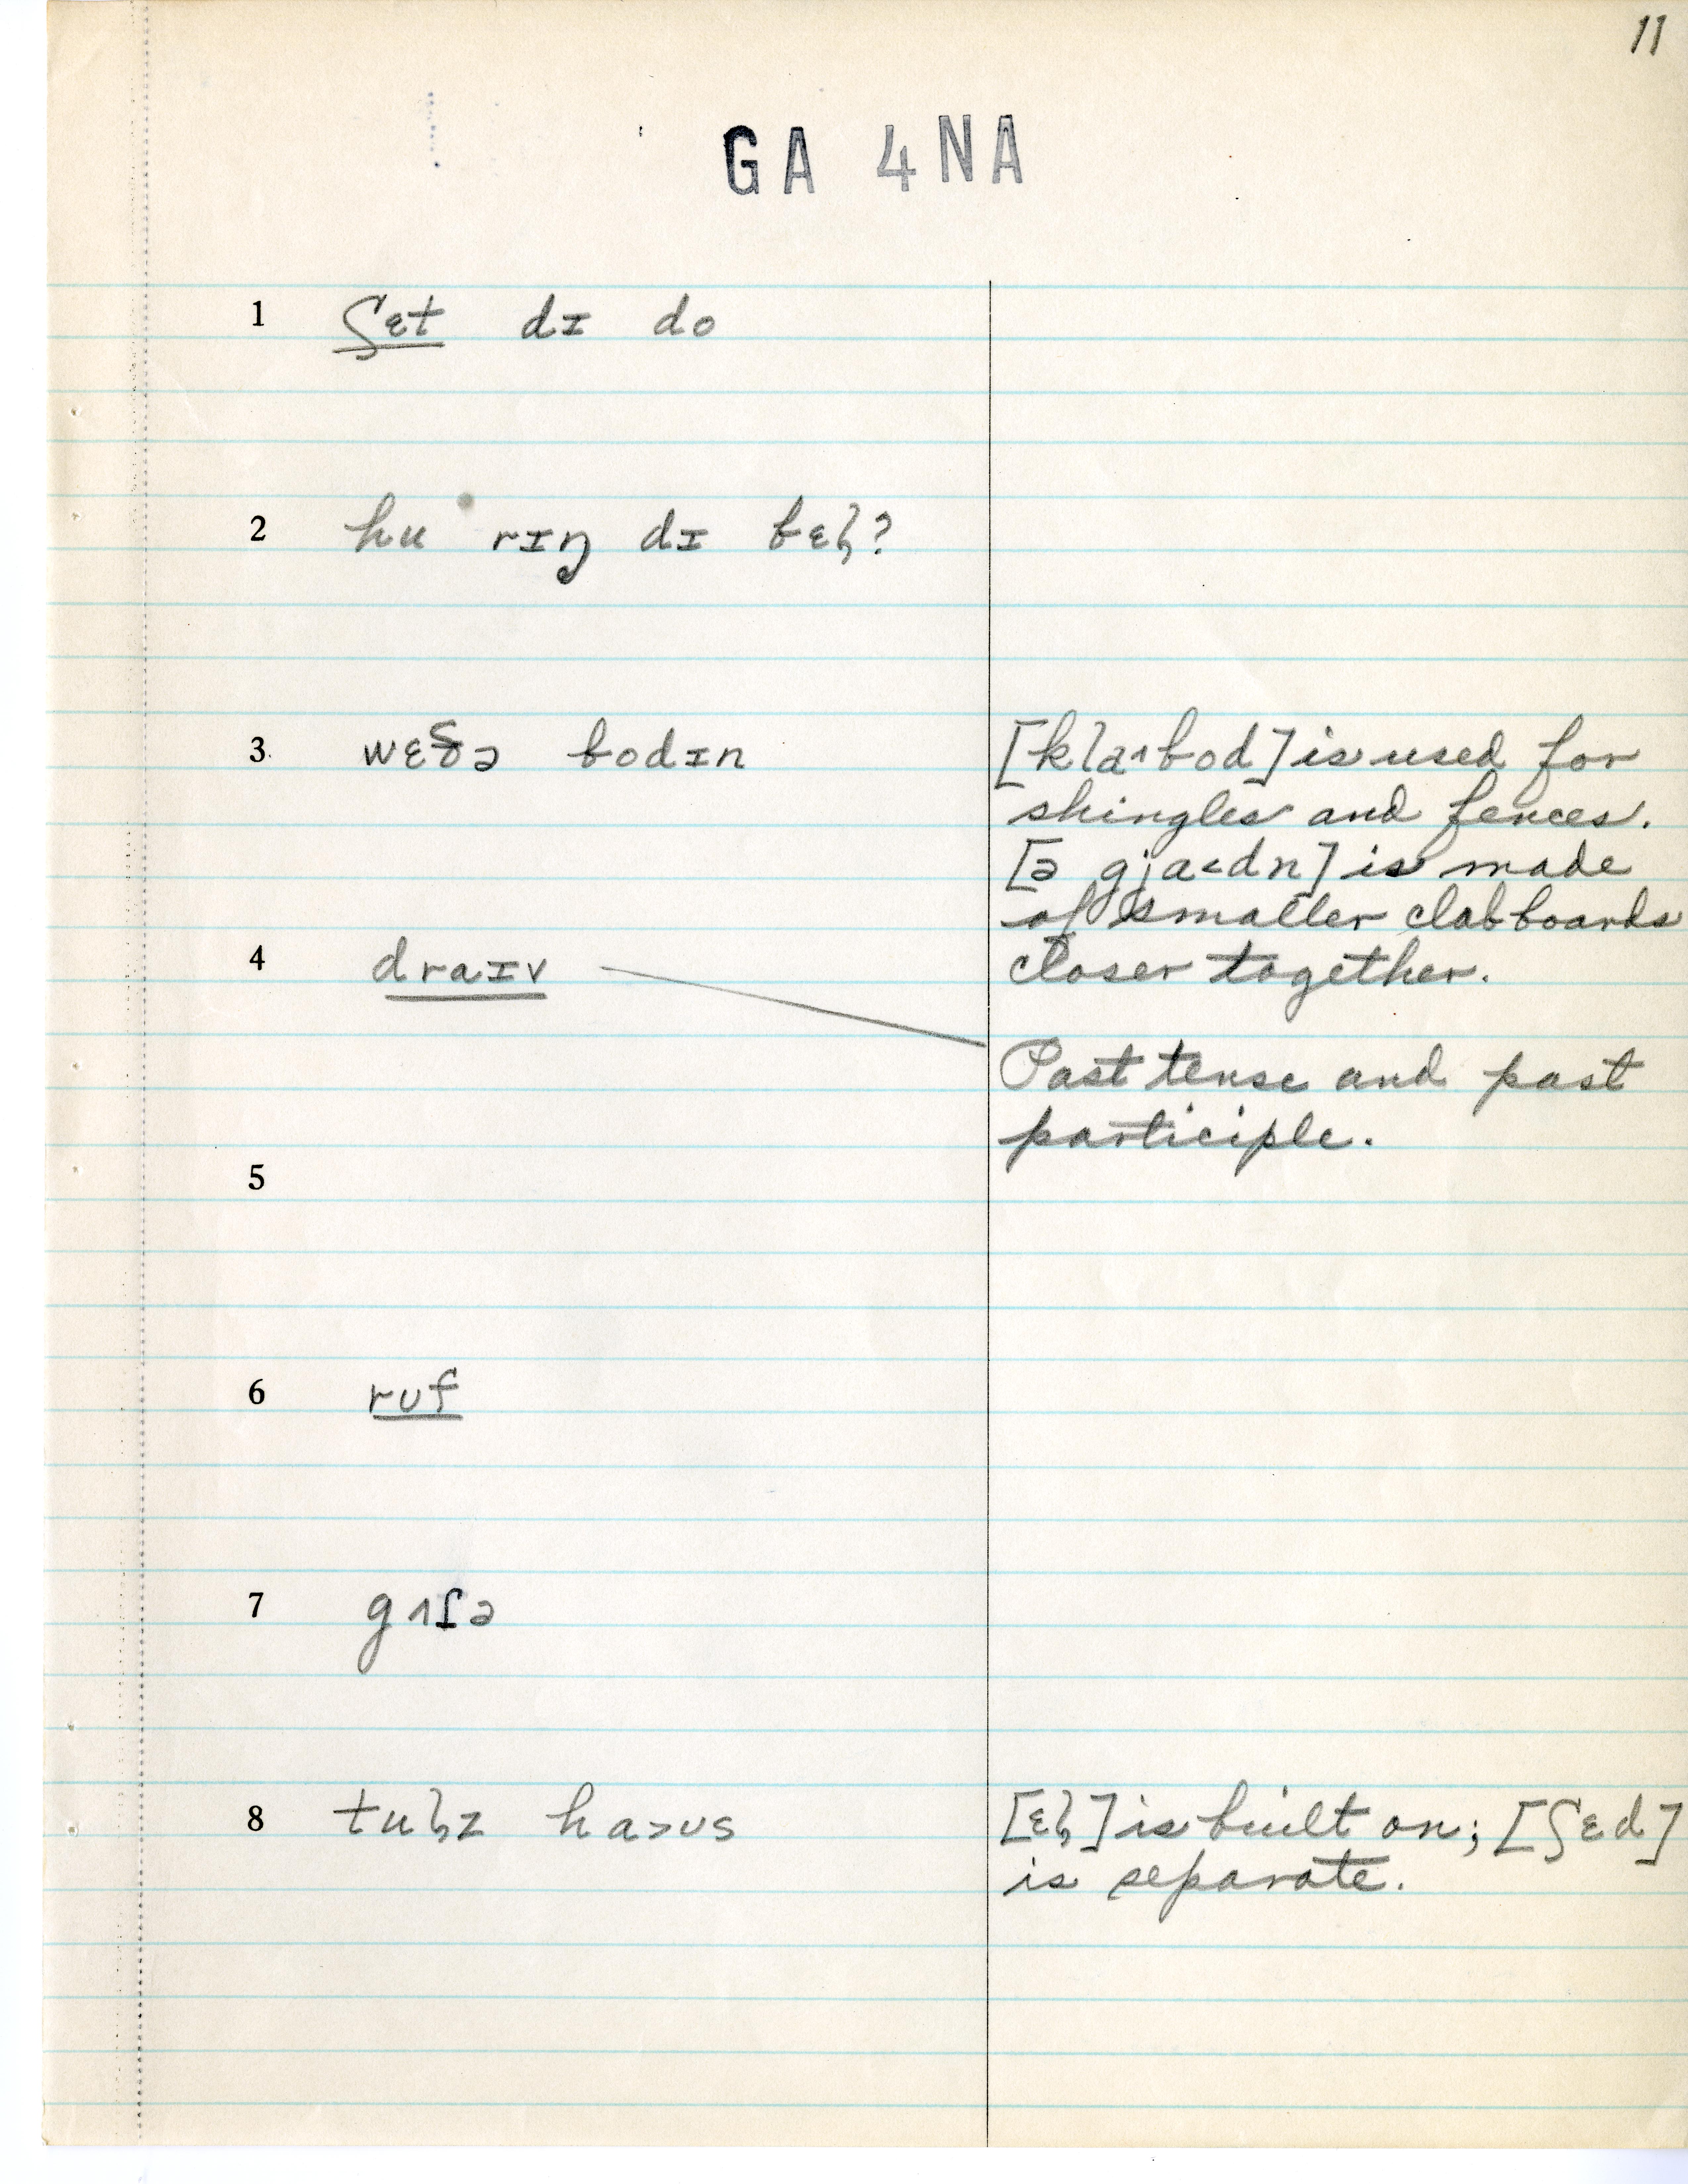 11
GA 4NA
1 ʃɛt dɪ do
2 hu rɪŋ dɪ bɛl̩?
3 wɛðə bodɪn
[kla˄bod] is used for
shingles and fences.
[ə gja˂dn] is made
of smaller clabboards
closer together.
4 draɪv
Past tense and past
participle.
5
6 rʊf
7
8 tul̩z ha˃ʊs
[ɛl̩] is built on; [ʃɛd]
is separate.